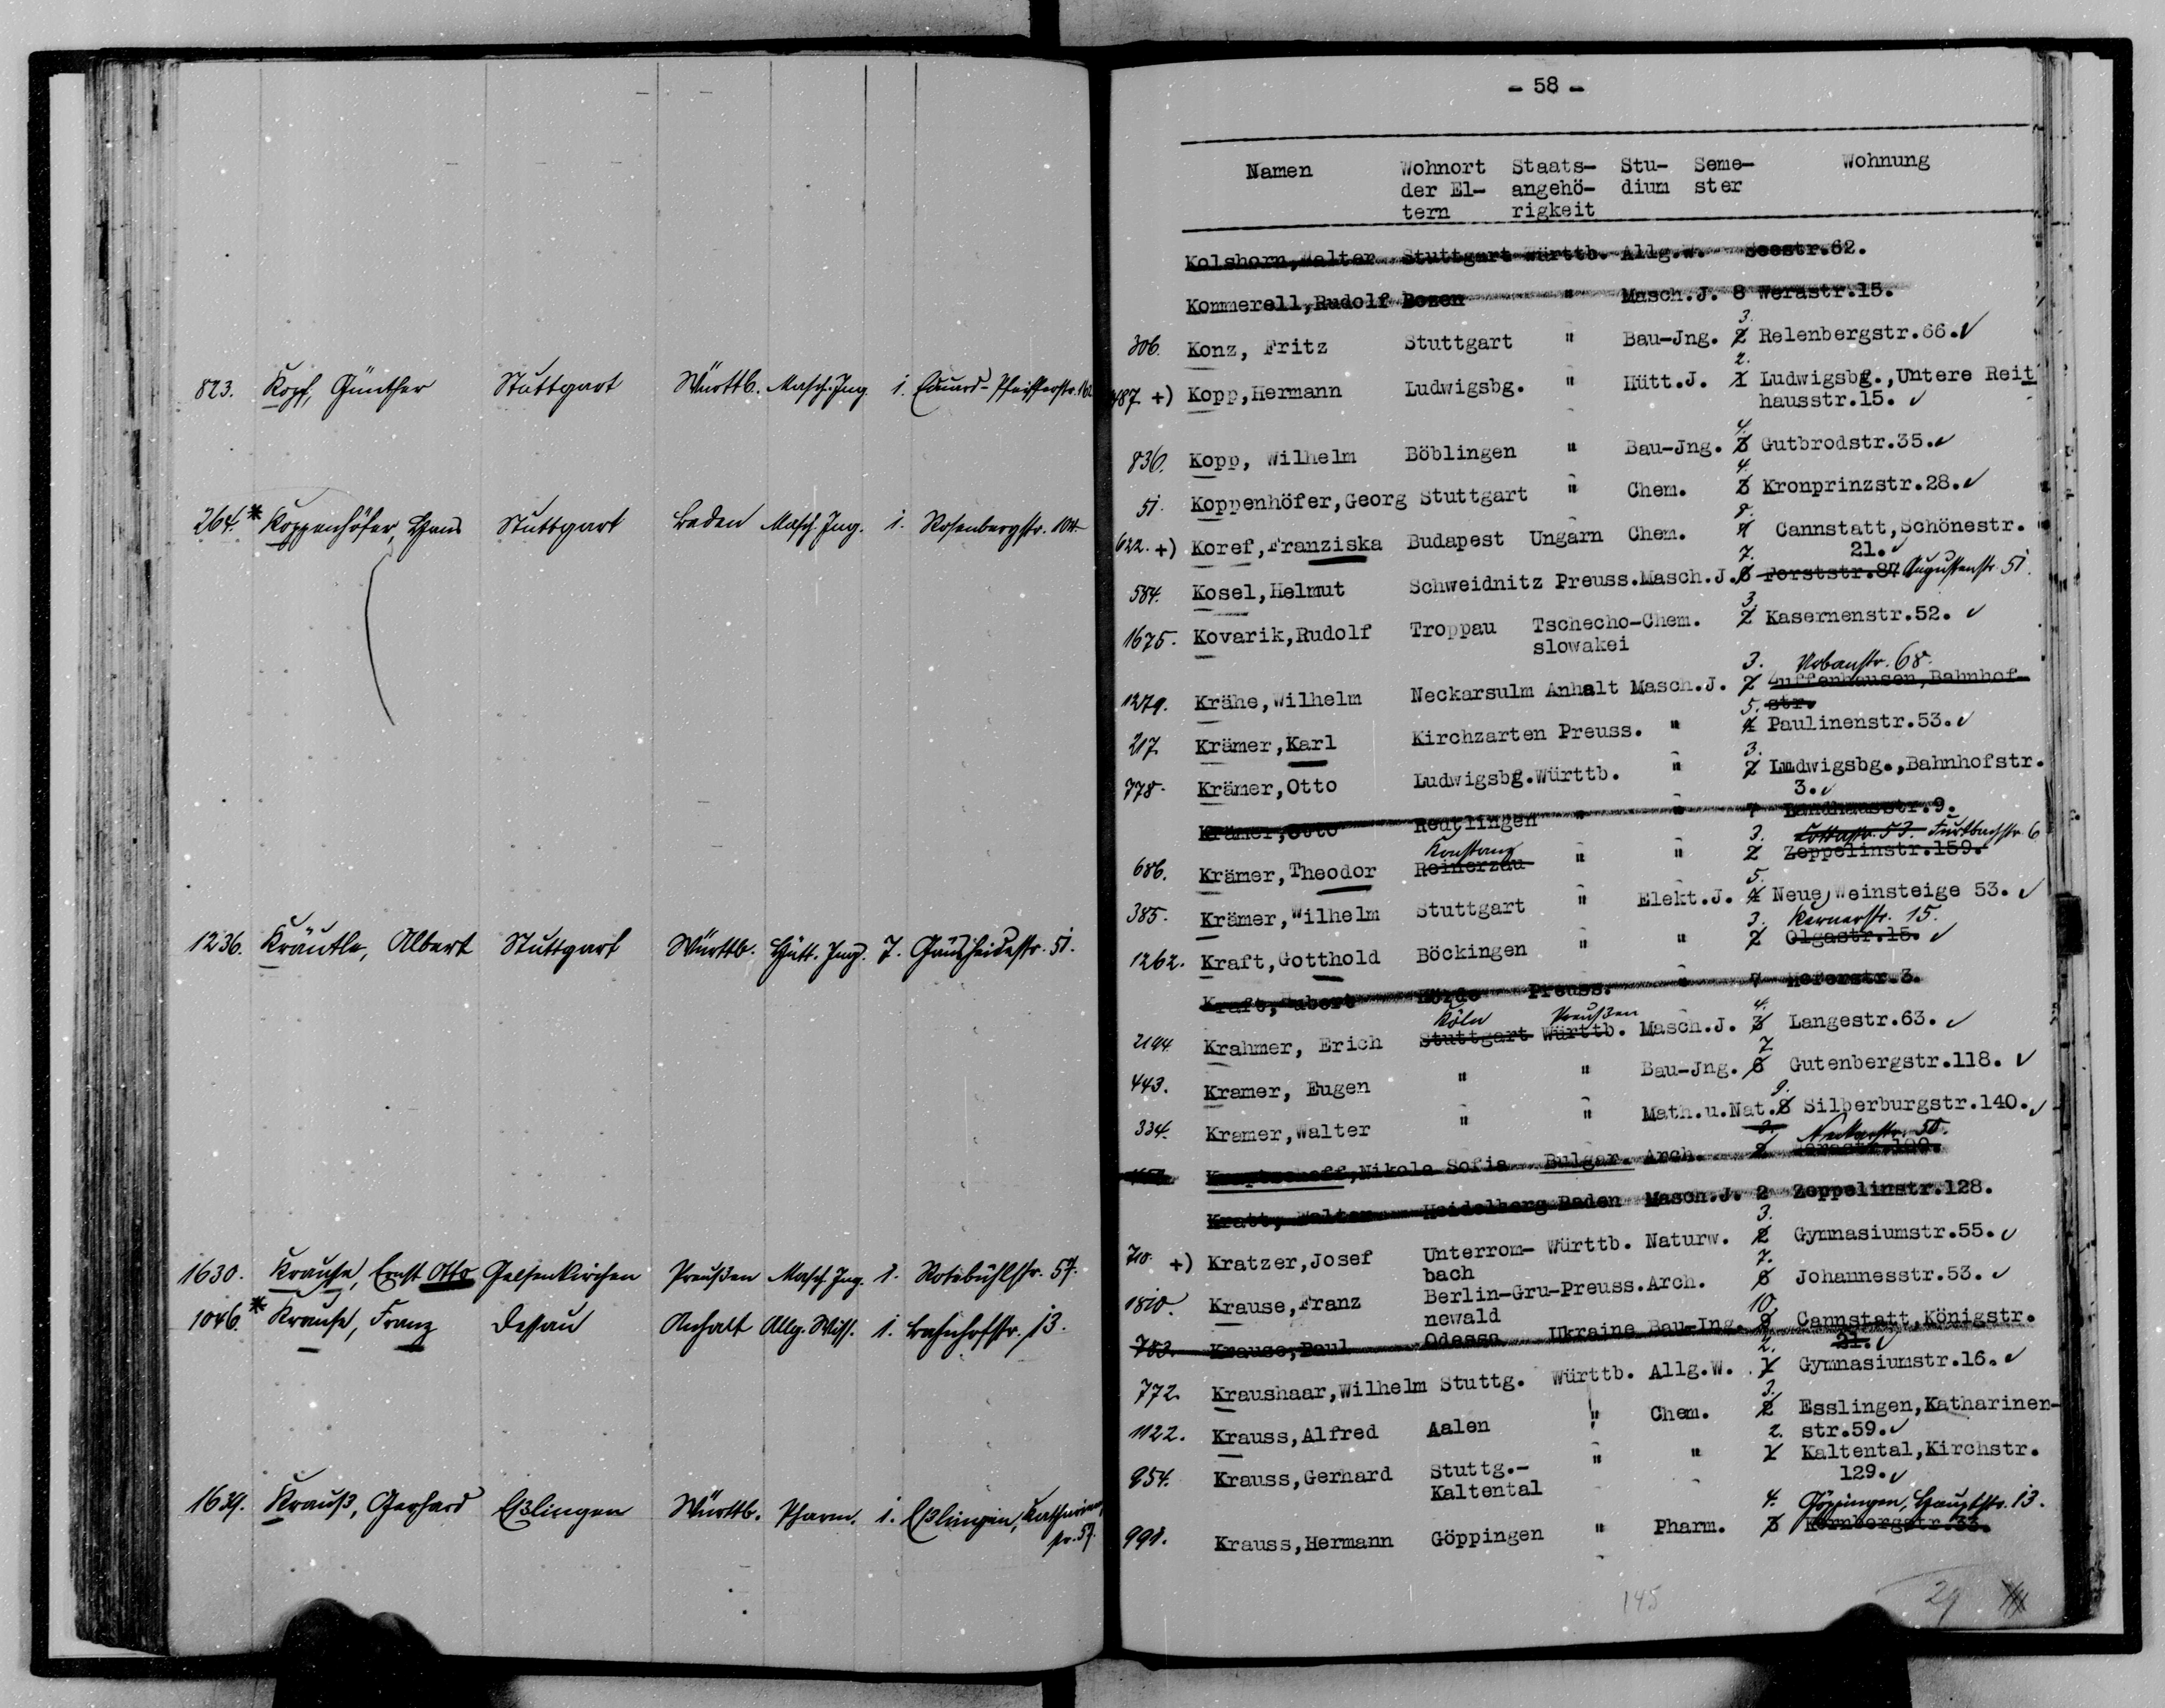 823. Kopf, Günther Stuttgart Württb. Masch. Ing. 1. Eduard-Pfeifferstr.
264.* Koppenhöfer, Hans Stuttgart Baden Masch. Ing. 1. Rosenbergstr. 104
1236. Kräutle, Albert Stuttgart Württb. Hütt. Ing. 7. Gänsheidestr. 51.
1630. Krause, Ernst Otto Gelsenkirchen Preußen Masch. Ing. 1. Rotebühlstr. 57.
1046.* Krause, Franz Dessau Anhalt Allg. Wiss. 1. Bahnhofstr. 13.
1639. Krauß, Gerhard Eßlingen Württb. Pharm. 1. Eßlingen, Katharinen
str. 59.
- 58 -
Namen Wohnort Staats- Stu- Seme- Wohnung
der El- angehö- dium ster
tern rigkeit
Kolshorn,Walter Stuttgart Württb. Allg.W. Seestr.62.
Kommerell,Rudolf Bozen " Masch.J. 8 Werastr.15.
3.
306. Konz, Fritz Stuttgart " Bau-Jng. 2 Relenbergstr.66.✓
2.
487 +) Kopp,Hermann Ludwigsbg. " Hütt.J. 1 Ludwigsbg.,Untere Reit
hausstr.15. ✓
4.
836. Kopp, Wilhelm Böblingen " Bau-Jng. 3 Gutbrodstr.35.✓
4.
51. Koppenhöfer,Georg Stuttgart " Chem. 3 Kronprinzstr.28.✓
622. +) Koref,Franziska Budapest Ungarn Chem. Cannstatt,Schönestr.
21.✓
7.
584. Kosel,Helmut Schweidnitz Preuss.Masch.J. 6 Forststr.87 Augustenstr. 51.
3.
1675. Kovarik,Rudolf Troppau Tschecho-Chem. 2 Kasernenstr.52. ✓
slowakei
3. Urbanstr. 68.
1279. Krähe,Wilhelm Neckarsulm Anhalt Masch.J. 2 Zuffenhausen,Bahnhof-
5. str.
217. Krämer,Karl Kirchzarten Preuss. " 4 Paulinenstr.53.✓
3.
778. Krämer,Otto Ludwigsbg.Württb. " 2 Ludwigsbg.,Bahnhofstr.
3.✓
Krämer,Otto Reutlingen " " 7 Landhausstr.9.
Konstanz 3. Cottastr. 53. Furtbachstr. 6
686. Krämer,Theodor Reinerzau " " 2 Zeppelinstr.159.
5.
385. Krämer,Wilhelm Stuttgart " Elekt.J. 4 Neue Weinsteige 53. ✓
3. Kernerstr. 15.
1262. Kraft,Gotthold Böckingen " " 2 Olgastr.15. ✓
Kraft,Hubert Hörde Preuss. " 7 Heferstr.3.
Köln Preußen 4.
2194 Krahmer, Erich Stuttgart Württb. Masch.J. 3 Langestr.63. ✓
7.
443. Kramer, Eugen " " Bau-Jng. 6 Gutenbergstr.118. ✓
9.
334. Kramer,Walter " " Math.u.Nat.8 Silberburgstr.140.✓
3. Neckarstr. 50.
Nikola Sofia Bulgar. Arch. 2
Kratt, Walter Heidelberg Baden Masch.J. 2 Zeppelinstr.128.
3.
710. +) Kratzer,Josef Unterrom- Württb. Naturw. 2 Gymnasiumstr.55.✓
bach 7.
1810. Krause,Franz Berlin-Gru-Preuss.Arch. 6 Johannesstr.53. ✓
newald 10.
783. Krause,Paul Odessa Ukraine Bau-Ing. 9 Cannstatt,Königstr.
2. 21.✓
772. Kraushaar,Wilhelm Stuttg. Württb. Allg.W. 1 Gymnasiumstr.16.✓
3.
1122. Krauss,Alfred Aalen " Chem. 2 Esslingen,Katharinen-
2. str.59.✓
954. Krauss,Gerhard Stuttg.- " " 1 Kaltental,Kirchstr.
Kaltental 129.✓
4. Göppingen, Hauptstr. 13.
998. Krauss,Hermann Göppingen " Pharm. 3 Kornbergstr.33.
145 29